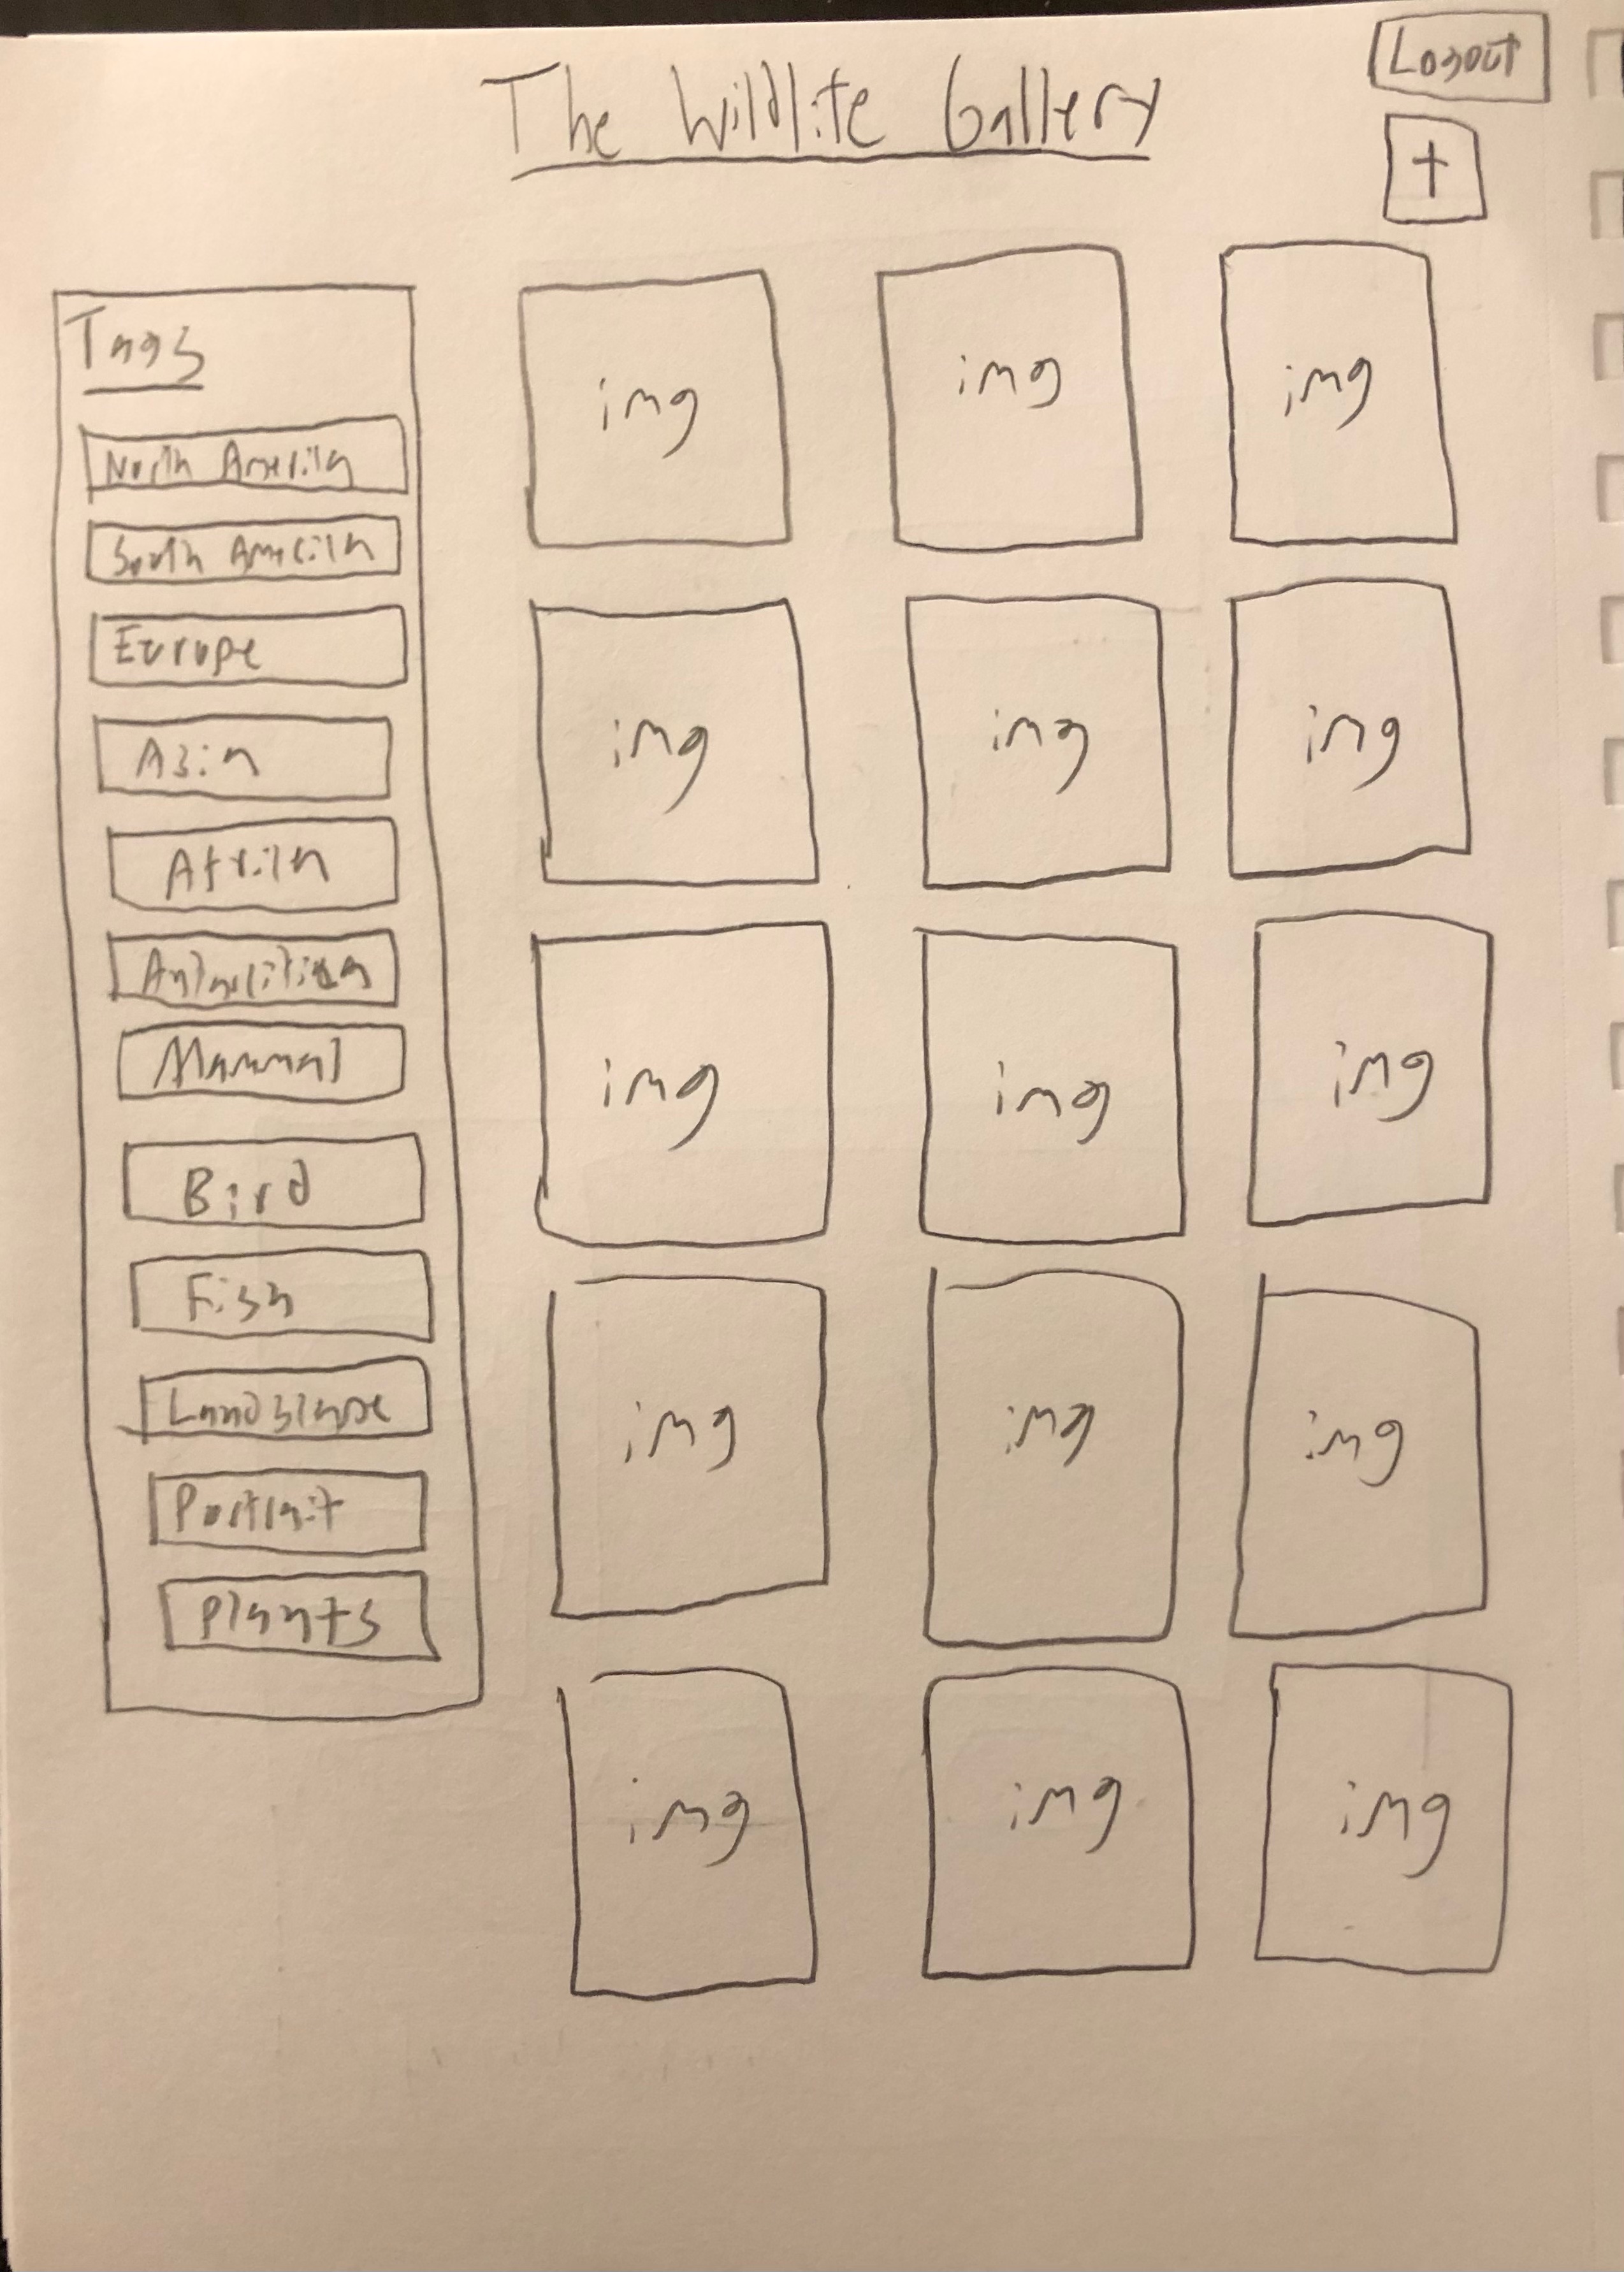 The Wildlife Gallery
Logout
+
Tags
North America
South America
Europe
Asia
Africa
Mammal
Bird
Fish
Landscape
Portrait
Plants
img img img
img img img
img img img
img img img
img img img